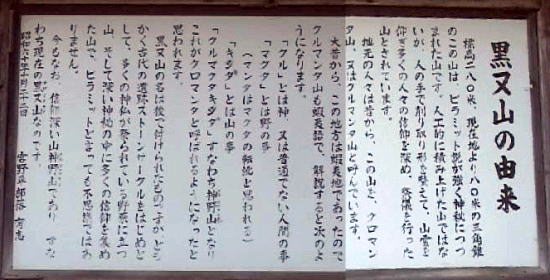 黒又山の由来
標高二八〇米、現在地より八〇米の三角錐
のこの山は、ピラミット説が強く神秘につつ
まれた山です。人工的に積み上げた山ではな
いが、人の手で削り取り形を整えて、山霊を
仰ぎ多くの人々の信仰を深め、祭儀を行った
山とされています。
地元の人々は昔から、この山を、クロマン
タ山、又はクルマンタ山と呼んでいます。
大昔から、この地方は蝦夷地であったので
クルマンタ山も蝦夷語で、解説すると次のよ
うになります。
「クル」とは神、又は普通でない人間の事
「マクタ」とは野の事
(マンタはマクタの転訛と思われる)
「キシダ」とは山の事
「クルマクタキシダ」すなわち神野山となり
これがクロマンタと呼ばれるようになったと
思われます。
黒又山の名は後で付けられたものですが、とも
かく古代の遺跡ストーンサークルをはじめと
して、多くの神仏が祭られている野原に立つ
山、そして深い神秘の中に多くの信仰を集め
た山で、ピラミットと言っても不思議ではあ
りません。
今もなお、信仰深い山神野山であり、すな
わち現在の黒又山なのです。
昭和六十年十月二十二日
宮野平部落 有志